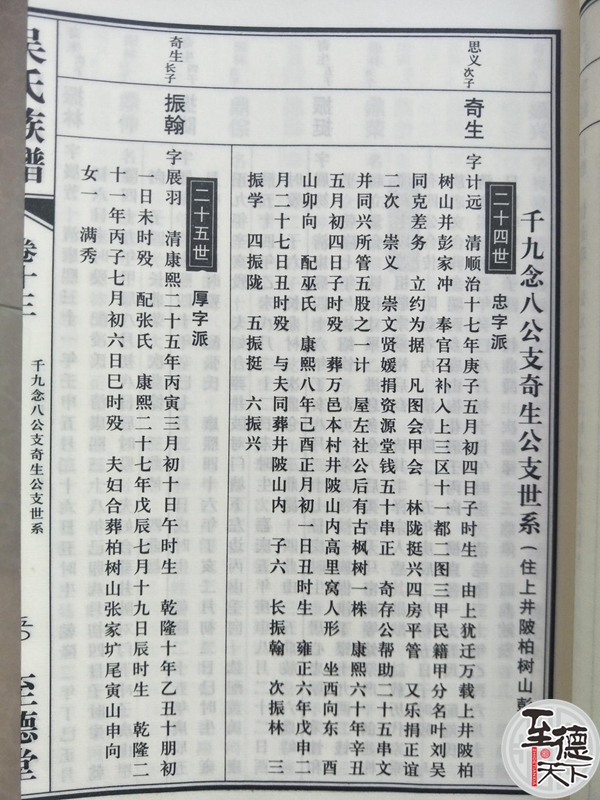 千九念八公支奇生公支世系（住上井陂柏树山彭
二十四世 忠字派
思义次子
奇生
字计远 清顺治十七年庚子五月初四日子时生 由上犹迁万载上井陂柏
树山并彭家冲 奉官召补入上三区十一都二图三甲民籍甲分名叶刘吴
同克差务 立约为据 凡图会甲会 林陇挺兴四房平管 又乐捐正谊
二次 崇义 崇文贤嫒捐资源堂钱五十串正 奇存公帮助二十五串文
并同兴所管五股之一计 屋左社公后有古枫树一株 康熙六十年辛丑
五月初四日子时殁 葬万邑本村井陂山内高里窝人形 坐西向东 酉
山卯向 配巫氏 康熙八年己酉正月初一日丑时生 雍正六年戊申二
月二十七日丑时殁 与夫同葬井陂山内 子六 长振翰 次振林 三
振学 四振陇 五振挺 六振兴
二十五世 厚字派
奇生长子
振翰
字展羽 清康熙二十五年丙寅三月初十日午时生 乾隆十年乙丑十朋初
一日未时殁 配张氏 康熙二十七年戊辰七月十九日辰时生 乾隆二
十一年丙子七月初六日巳时殁 夫妇合葬柏树山张家圹尾寅山申向
女一 满秀
吴氏族谱
卷十三
千九念八公支奇生公支世系
五〇
至德堂
至德天下